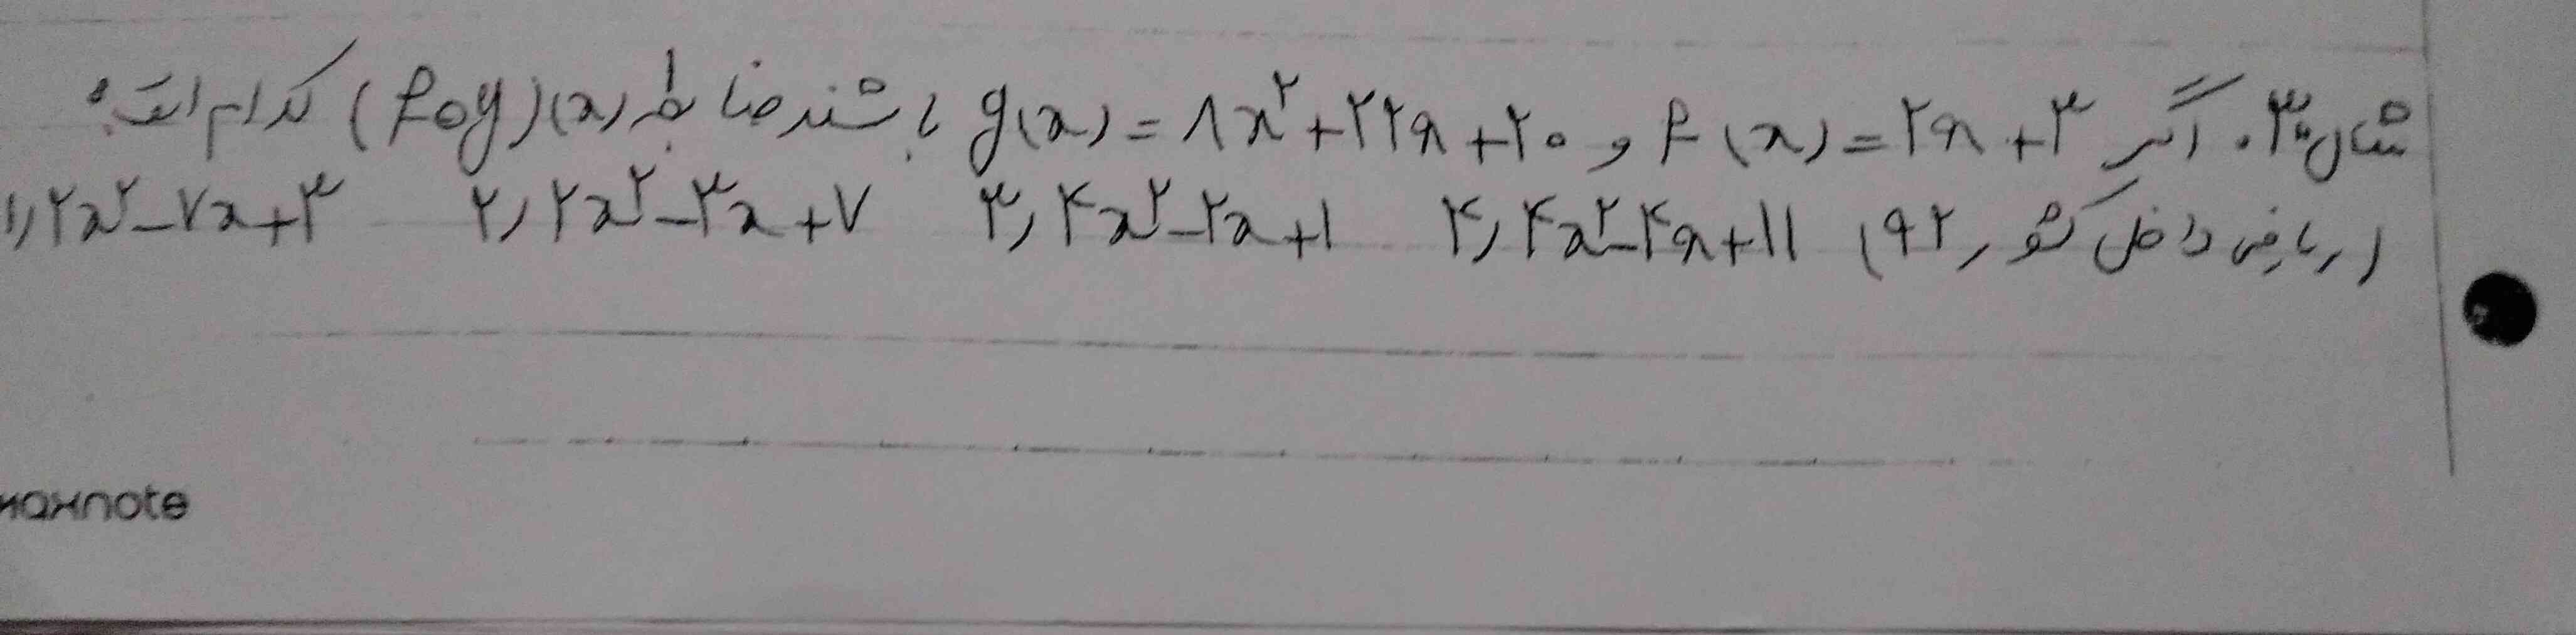 مثال ۳۰. اگر f(x) = ۲x + ۳ و g(x) = ۸x² + ۲۲x + ۲۰ باشند ضابطه (fog)(x) کدام است؟
(ریاضی داخل کشور ۹۲) ۱) ۲x² - ۷x + ۳ ۲) ۲x² - ۳x + ۷ ۳) ۴x² - ۲x + ۱ ۴) ۴x² - ۴x + ۱۱
maxnote